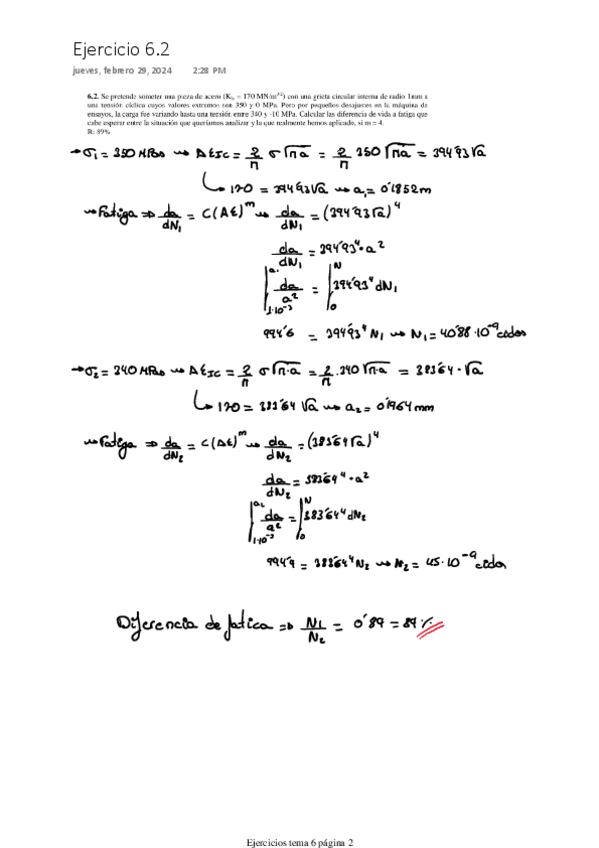 Ejercicio 6.2
jueves, febrero 29, 2024 2:28 PM
6.2. Se pretende someter una pieza de acero (K_Ic = 170 MN/m^3/2) con una grieta circular interna de radio 1mm a
una tensión cíclica cuyos valores extremos son 350 y 0 MPa. Pero por pequeños desajustes en la máquina de
ensayos, la carga fue variando hasta una tensión entre 340 y -10 MPa. Calcular las diferencia de vida a fatiga que
cabe esperar entre la situación que queríamos analizar y la que realmente hemos aplicado, si m = 4.
R: 89%
→ σ1 = 350 MPas ⇝ ΔƐIC = 2/π σ √π·a = 2/π 350 √π·a = 394'93 √a
170 = 394'93 √a ⇝ a1 = 0'1852 m
⇝ Fatiga ⇒ da/dN1 = C(ΔƐ)^m ⇝ da/dN1 = (394'93 √a)^4
da/dN1 = 394'93^4 · a^2
∫ 1·10^-3 da/a^2 = ∫ 0 N 394'93^4 dN1
994'6 = 394'93^4 N1 ⇝ N1 = 40'88·10^-9 ciclos
→ σ2 = 340 MPas ⇝ ΔƐIC = 2/π σ √π·a = 2/π · 340 √π·a = 383'64 · √a
170 = 383'64 √a ⇝ a2 = 0'1964 mm
⇝ Fatiga ⇒ da/dN2 = C(ΔƐ)^m ⇝ da/dN2 = (383'64 √a)^4
da/dN2 = 383'64^4 · a^2
∫ 1·10^-3 a2 da/a^2 = ∫ 0 N 383'64^4 dN2
994'9 = 383'64^4 N2 ⇝ N2 = 45·10^-9 ciclos
Diferencia de fatica ⇒ N1/N2 = 0'89 = 89%
Ejercicios tema 6 página 2